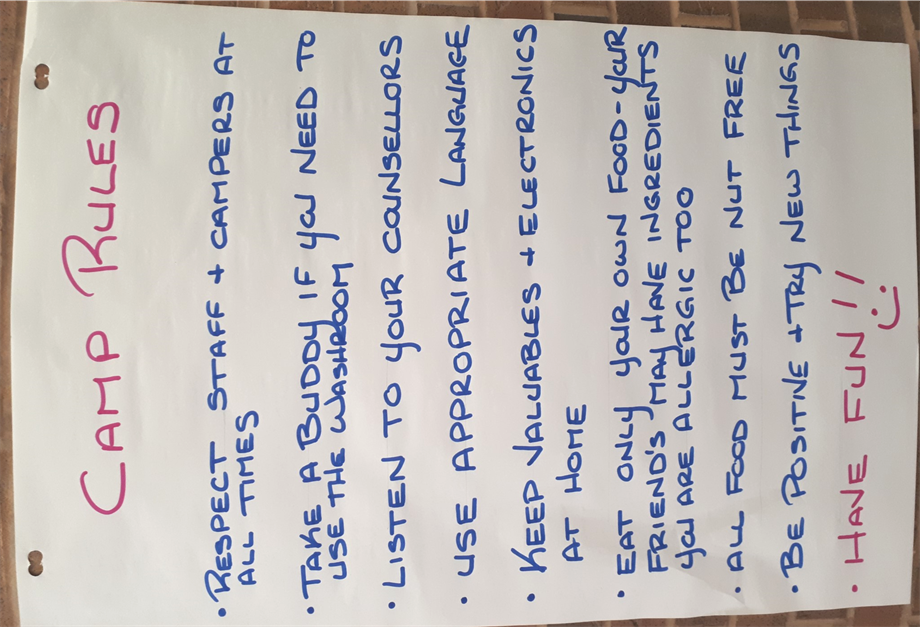 CAMP RULES
• RESPECT STAFF + CAMPERS AT
ALL TIMES
• TAKE A BUDDY IF YOU NEED TO
USE THE WASHROOM
• LISTEN TO YOUR COUNSELLORS
• USE APPROPRIATE LANGUAGE
• KEEP VALUABLES + ELECTRONICS
AT HOME
• EAT ONLY YOUR OWN FOOD - YOUR
FRIEND'S MAY HAVE INGREDIENTS
YOU ARE ALLERGIC TOO
• ALL FOOD MUST BE NUT FREE
• BE POSITIVE + TRY NEW THINGS
• HAVE FUN!!